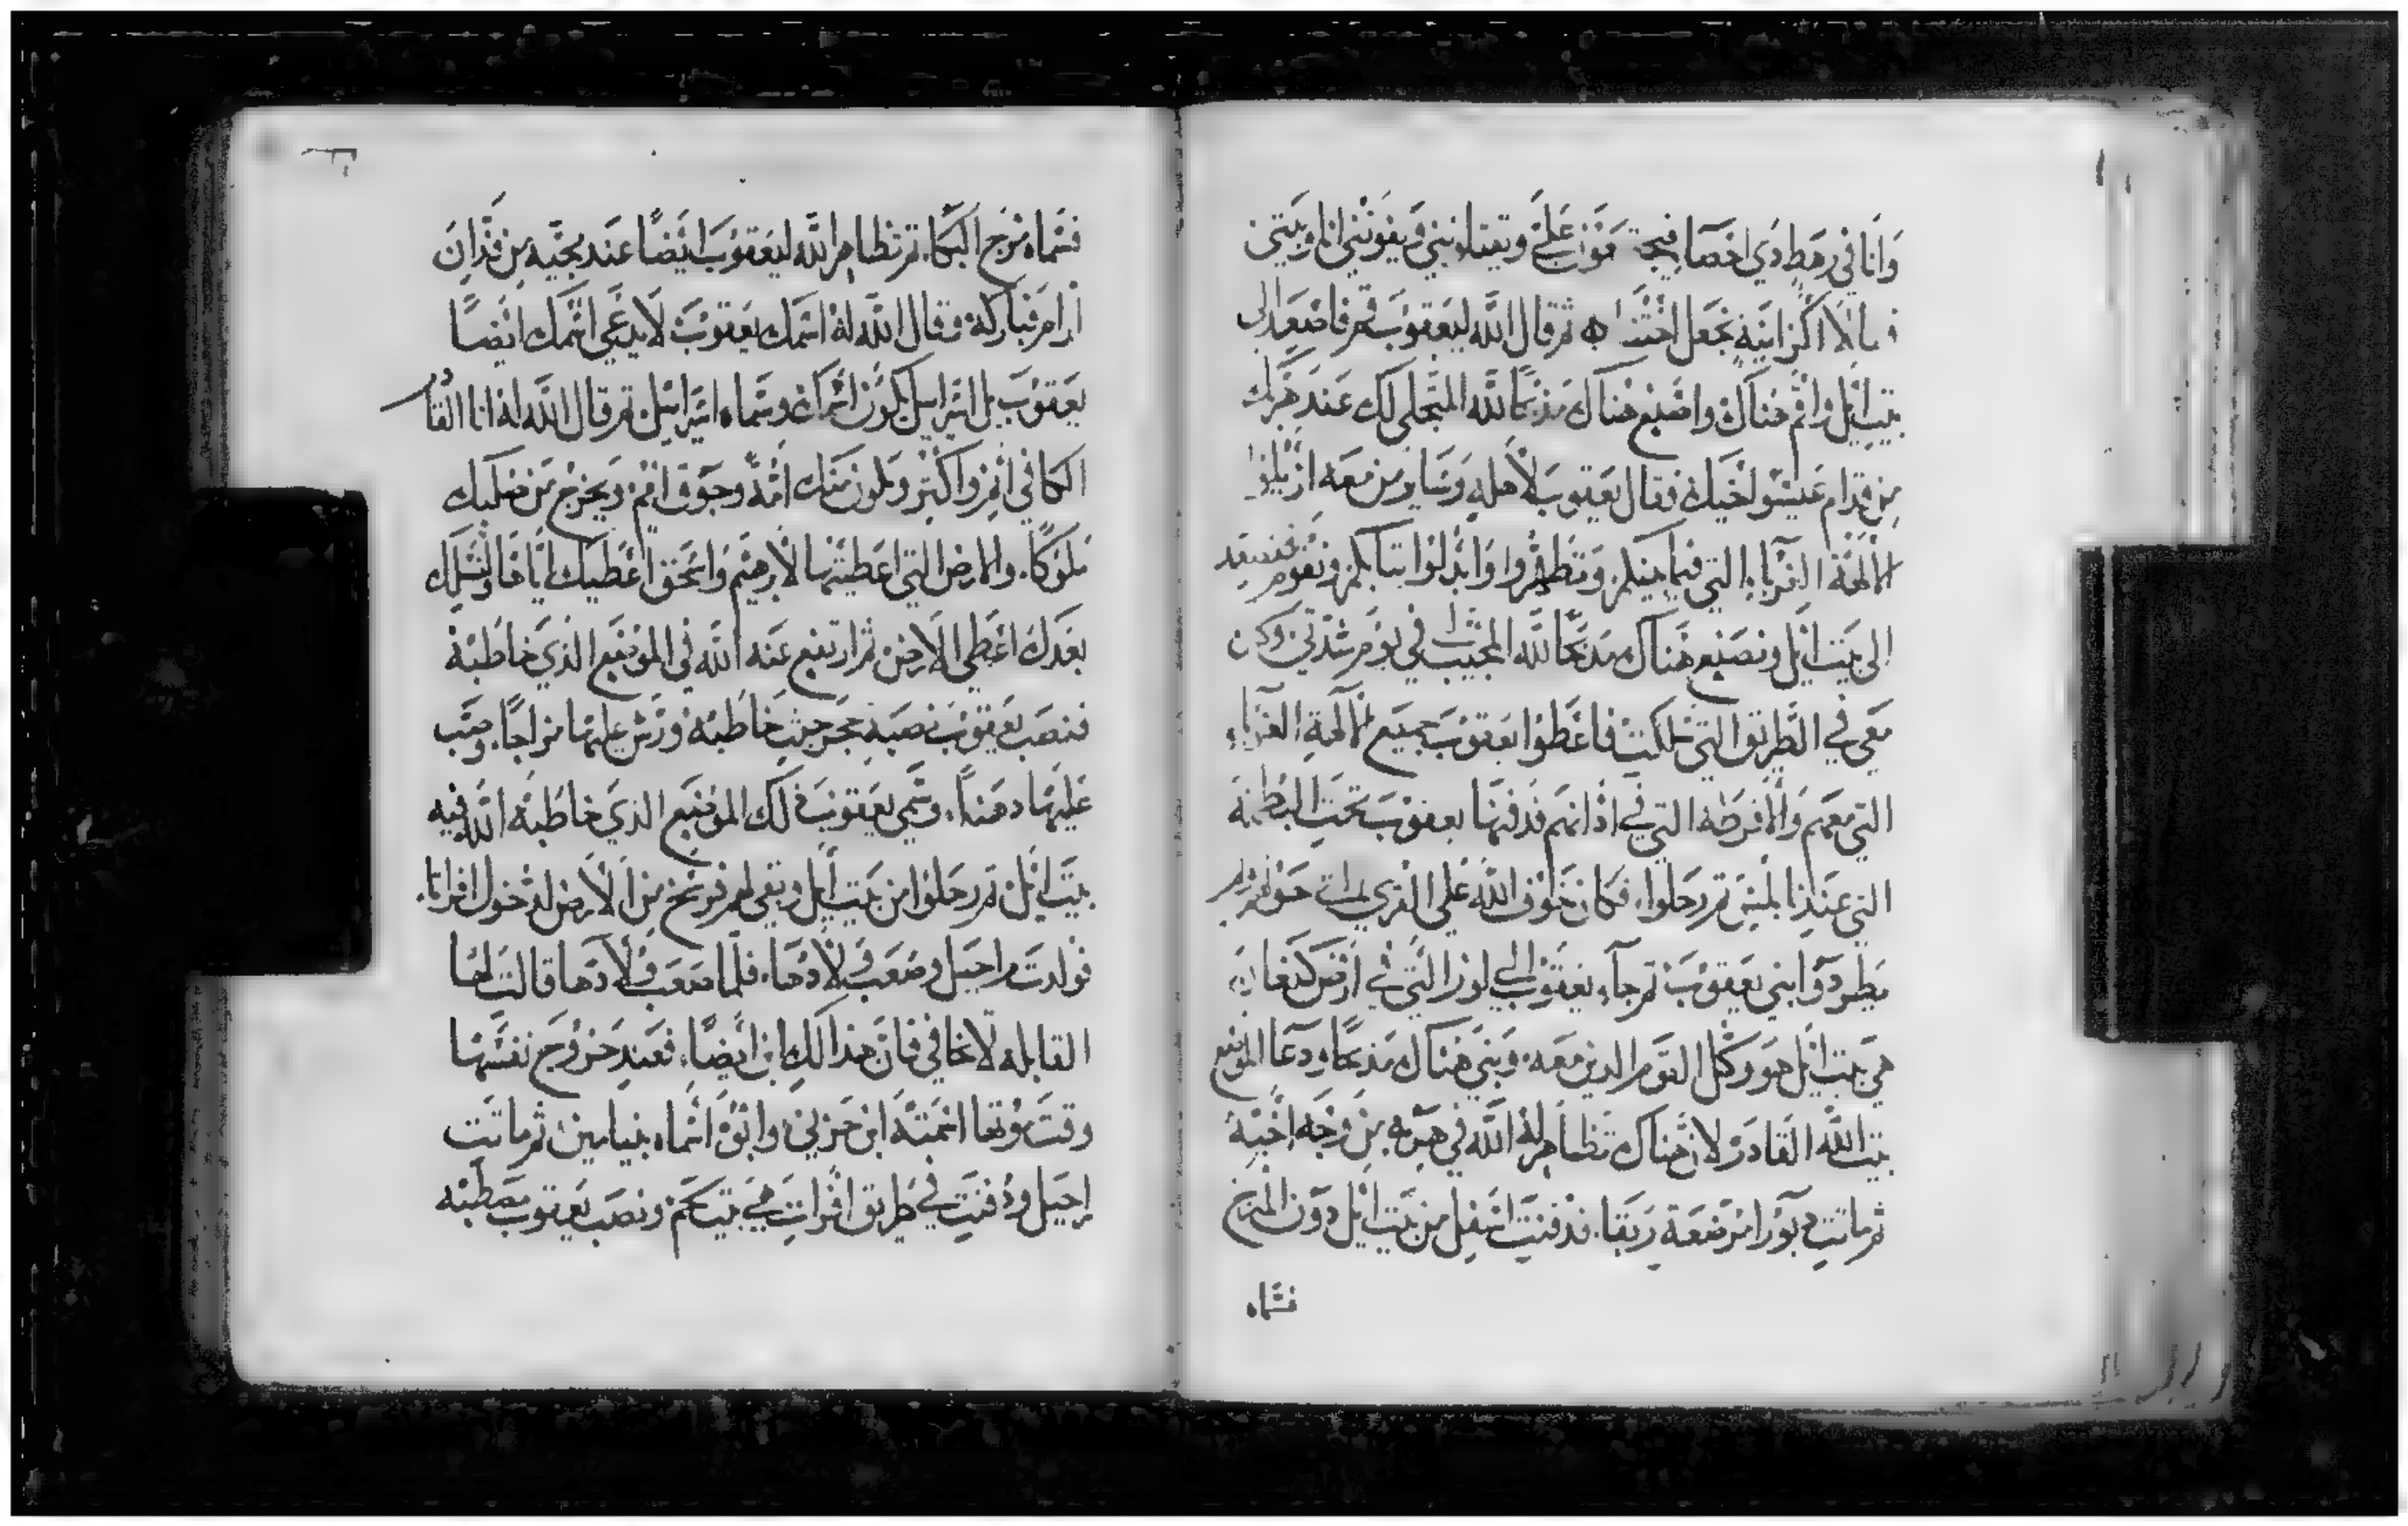 وانا في رهط ذي احصاء فيجتمعون علي ويقتلونني ويفنونني انا وبيتي
فقالا اكزانية نجعل اختنا ثم قال الله ليعقوب قم فاصعد الى
بيت ايل واقم هناك واصنع هناك مذبحا لله المتجلي لك عند هربك
من قدام عيسو اخيك فقال يعقوب لاهله وساير من معه ازيلوا
الالهة الغرباء التي فيما بينكم وتطهروا وابدلوا ثيابكم ونقوم فنصعد
الى بيت ايل ونصنع هناك مذبحا لله المجيب في يوم شدتي وكان
معي في الطريق التي سلكت فاعطوا يعقوب جميع الالهة الغرباء
التي معهم والاقرطه التي في اذانهم فدفنها يعقوب تحت البطمة
التي عند نابلس ثم رحلوا فكان خوف الله على القرى التي حولهم ولم
يطردوا بني يعقوب ثم جاء يعقوب الى لوزا التي في ارض كنعان
هي بيت ايل هو وكل القوم الدين معه وبنى هناك مذبحا ودعا الموضع
بيت الله القادر لان هناك تظاهر له الله في هربه من وجه اخيه
ثم ماتت دبورا مرضعة ربقا فدفنت اسفل من بيت ايل دون المرج
فسماه
فسماه مرج البكا ثم تظاهر الله ليعقوب ايضا عند مجيه من فدان
ارام فباركه وقال الله له اسمك يعقوب لا يدعى اسمك ايضا
يعقوب بل اسراييل يكون اسمك وسماه اسراييل ثم قال الله له انا القادر
الكافي اثمر واكثر ويكون منك امة وجوق امم ويخرج من صلبك
ملوكا والارض التي اعطيتها لابرهيم واسحق اعطيك اياها ولنسلك
بعدك اعطي الارض ثم ارتفع عنه الله في الموضع الذي خاطبه
فنصب يعقوب نصبة حجر حيث خاطبه ورش عليها مزاجا وصب
عليها دهنا وسمى يعقوب ذلك الموضع الذي خاطبه الله فيه
بيت ايل ثم رحلوا من بيت ايل وبقي لهم فرسخ من الارض لدخول افراتا
فولدت راحيل وصعب ولادها فلما صعب ولادها قالت لها
القابله لا تخافي فان هذا لك ابن ايضا فعند خروج نفسها
وقت موتها اسمته ابن حزني وابوه اسماه بنيامين ثم ماتت
راحيل ودفنت في طريق افرات هي بيت لحم ونصب يعقوب مصطبه